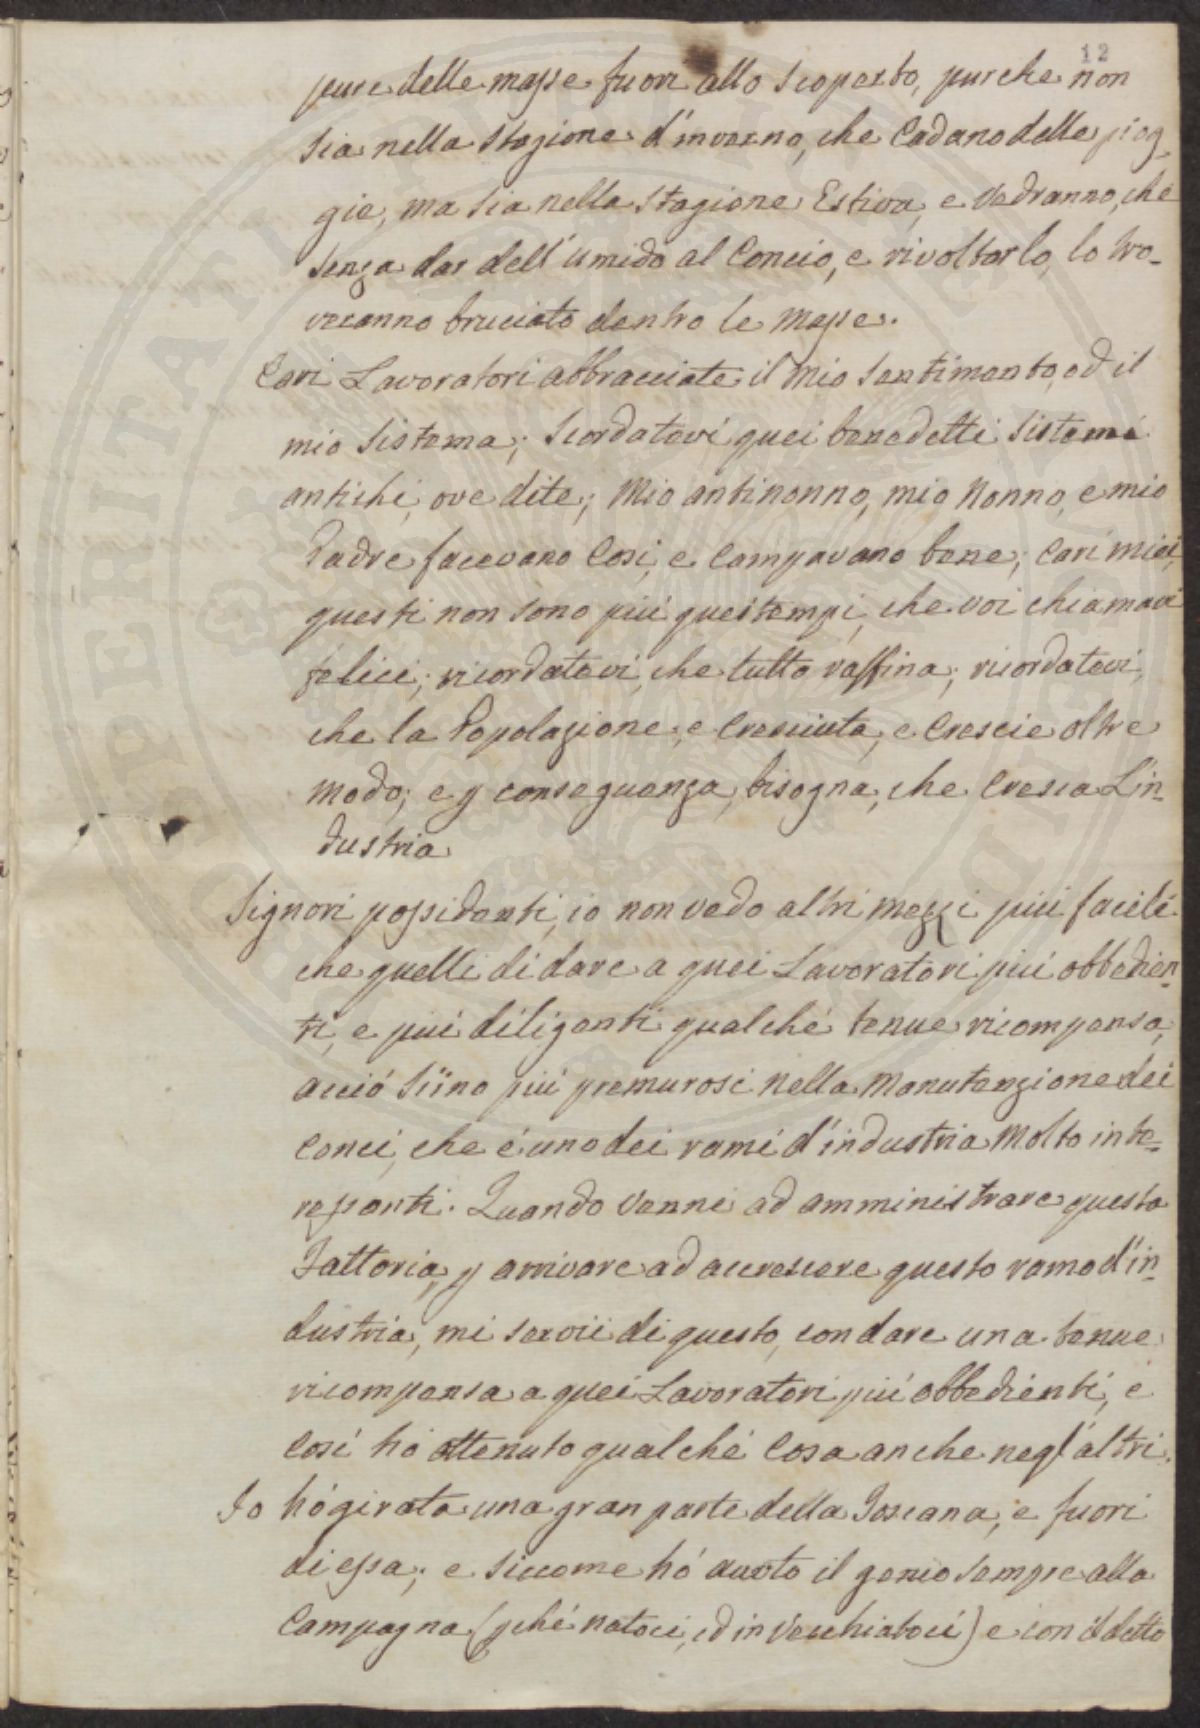 12
pure delle masse fuori allo scoperto, purche non
sia nella stagione d'inverno, che Cadano delle piog-
gie, ma sia nella stagione Estiva, e Vedranno, che
senza dar dell'umido al Concio, e rivoltarlo, lo tro-
veranno bruciato dentro le masse.
Cari Lavoratori abbracciate il mio sentimento, ed il
mio sistema; Scordatevi quei benedetti sistemi
antichi, ove dite; Mio antinonno, mio Nonno, e mio
Padre facevano Così, e Campavano bene; Cari miei,
questi non sono più quei tempi, che voi chiamavi
felici; ricordatevi, che tutto raffina; ricordatevi,
che la Popolazione, e Cresciuta, e Crescie oltre
modo; e p conseguenza, bisogna, che Cresca L'in-
dustria
Signori possidenti, io non vedo altri mezzi più facili
che quelli di dare a quei Lavoratori più obbedien-
ti, e più diligenti qualché tenue ricompensa,
acció siino più premurosi nella manutenzione dei
Conci, che é uno dei rami d'industria Molto inte-
ressanti. Quando Venni ad amministrare questa
Fattoria, p arrivare ad accrescere questo ramo d'in-
dustria, mi servii di questo, con dare una tenue
ricompensa a quei Lavoratori più obbedienti, e
Così hó ottenuto qualché Cosa anche negl'altri.
Io hó girato una gran parte della Toscana, e fuori
di essa; e siccome hó avuto il genio sempre alla
Campagna (pché natoci, ed invecchiatoci) e con il detto